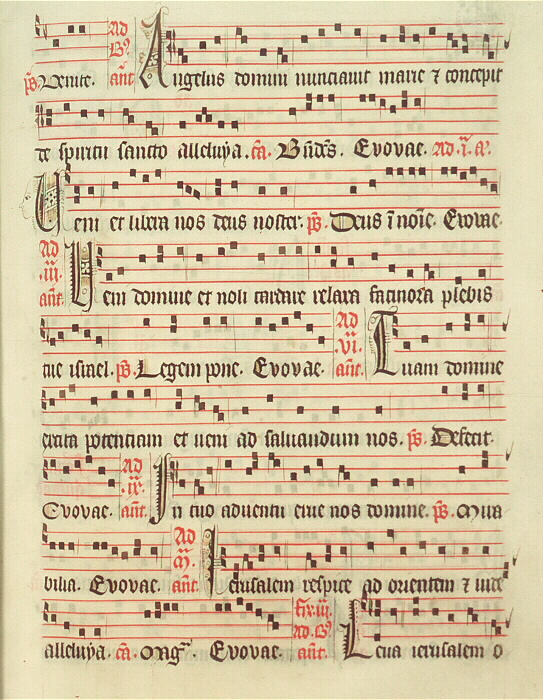 ps Venite. Ad Bs. ant Angelus domini nunciavit marie ⁊ concepit
de spiritu sancto alleluya. ca. Bnds. Evovae. ad .i. a.
Veni et libera nos deus noster. ps Deus i noie. Evovae.
Ad .iii. ant. Veni domine et noli tardare relaxa facinora plebis
tue israel. ps Legem pone. Evovae. Ad .vi. ant. Tuam domine
excita potenciam et veni ad salvandum nos. ps. Defecit.
Evovae. ad .ix. ant. In tuo adventu erue nos domine. ps. Mira
bilia. Evovae. Ad M. ant. Ierusalem respice ad orientem ⁊ vide
alleluya. ca. Mag. Evovae. fr. iii. ad. Bs. ant. Leva ierusalem o